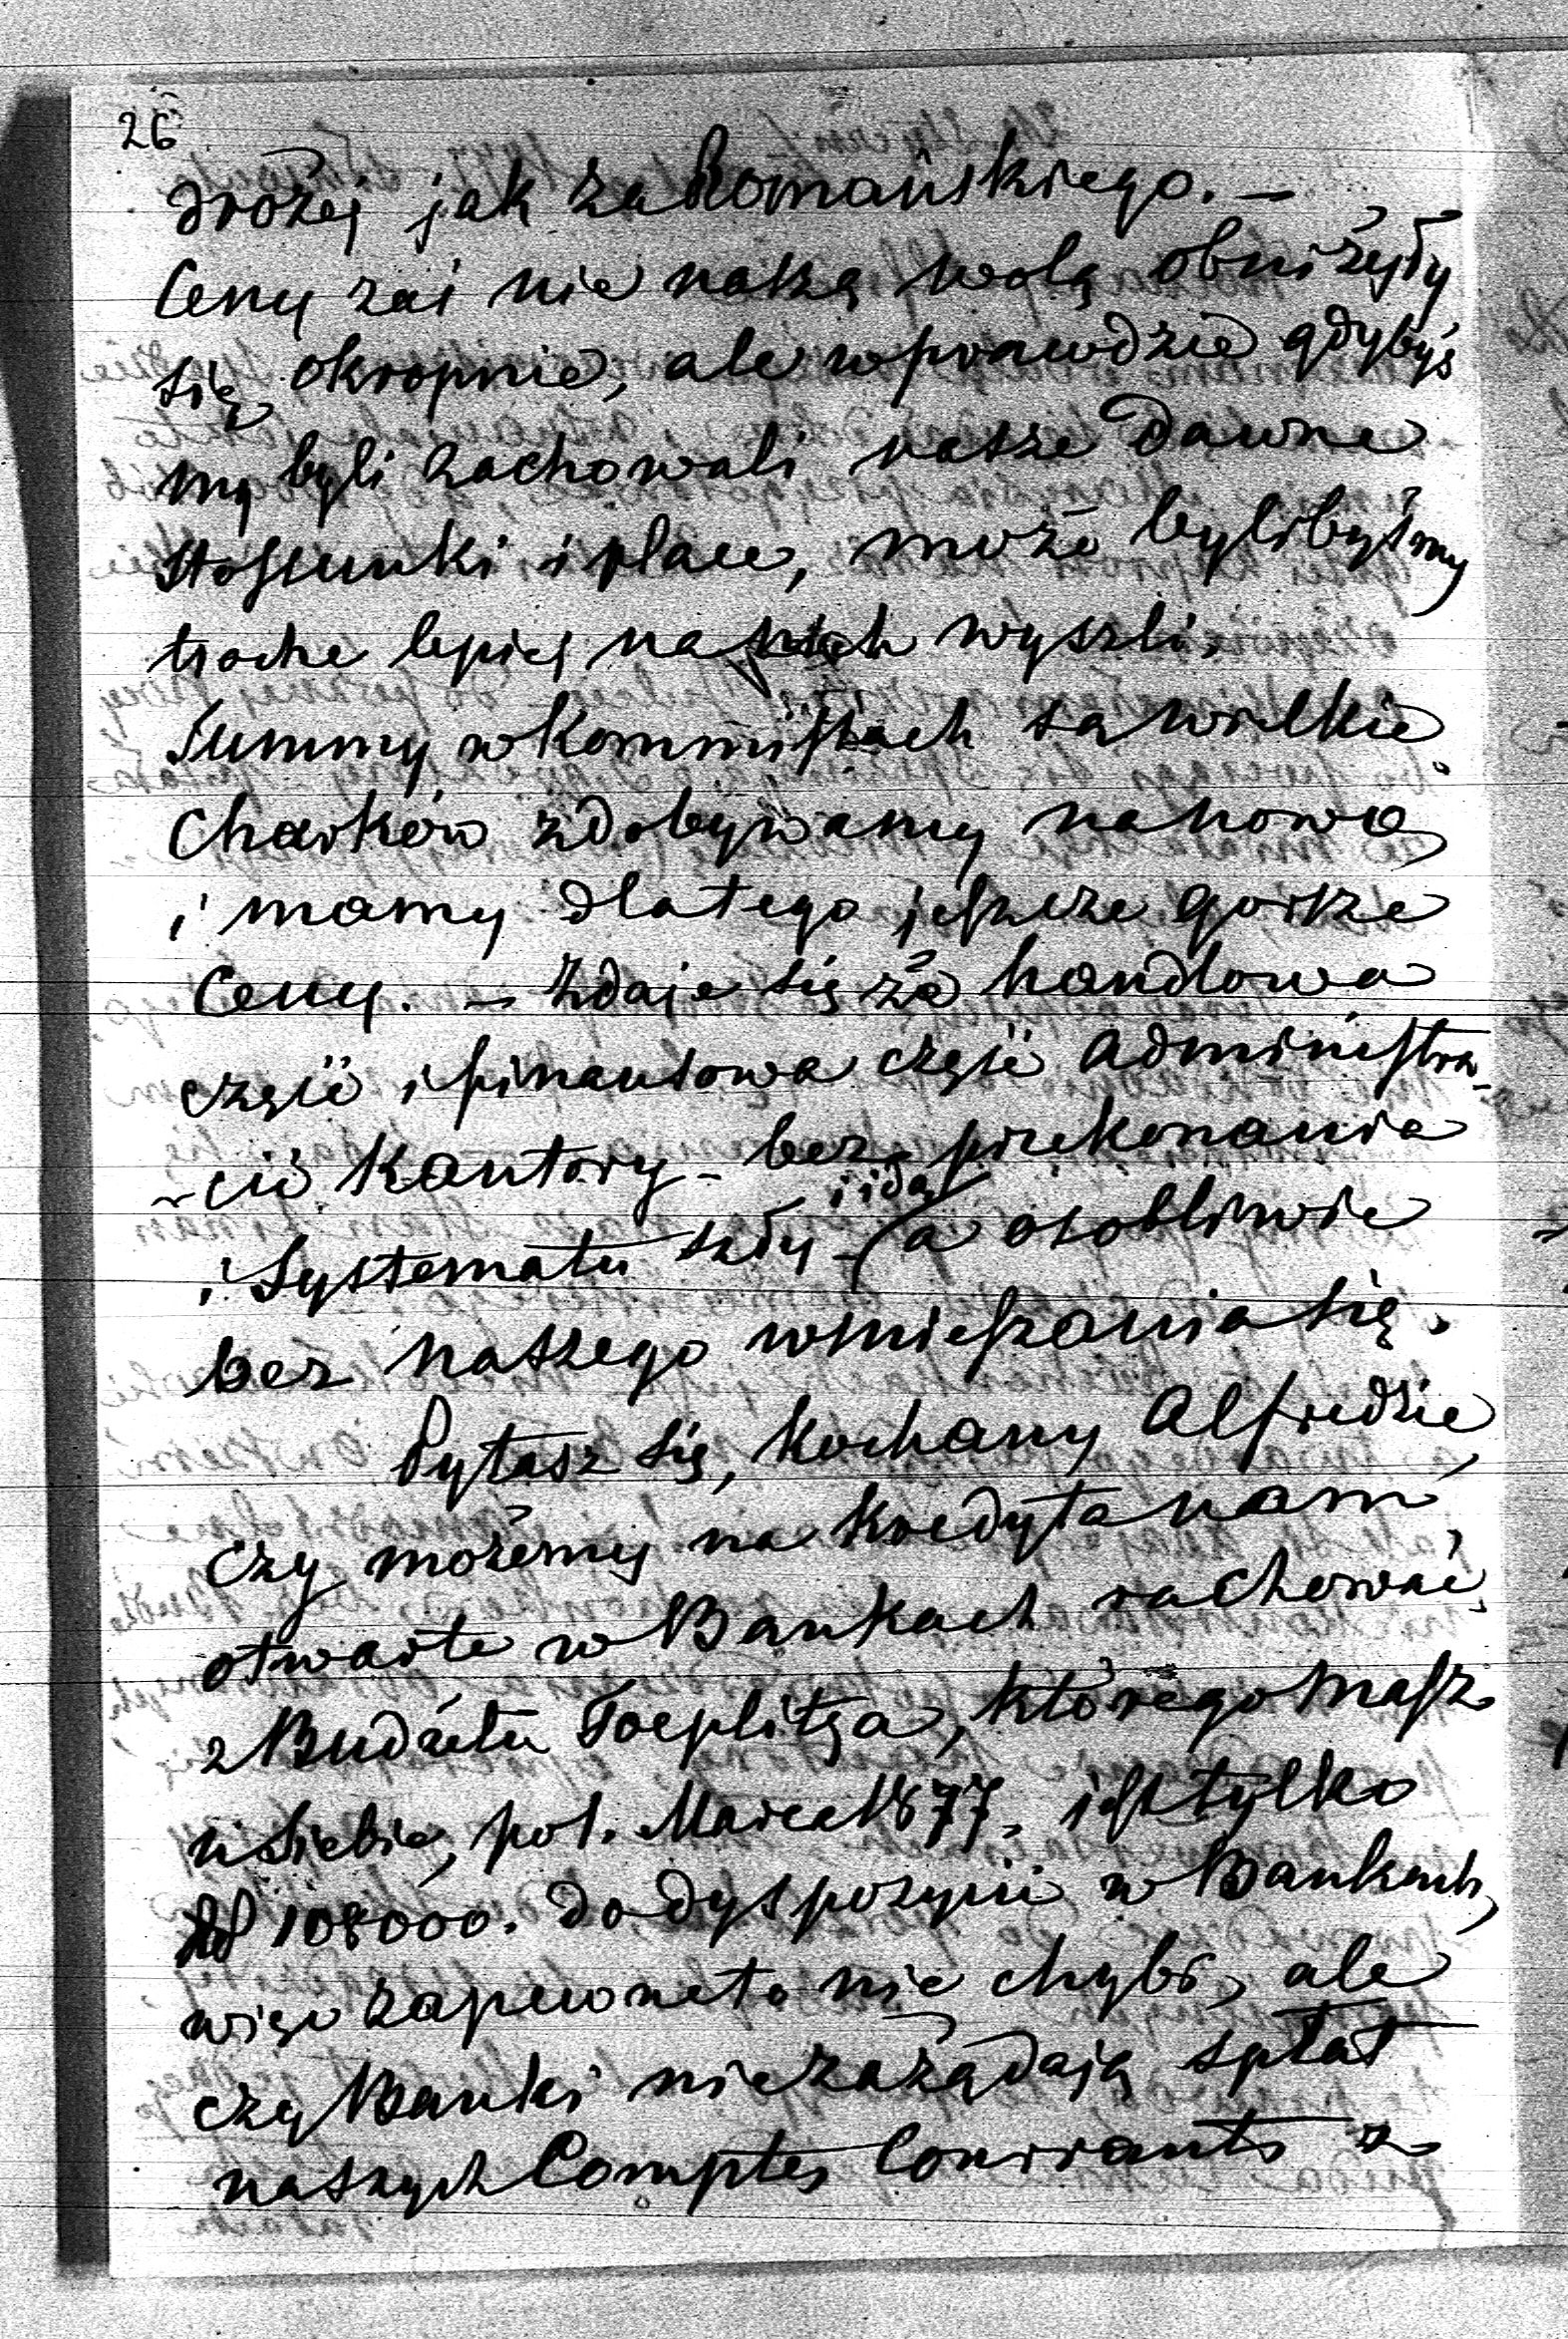 26
drożej jak za Romańskiego. –
Ceny zaś nie naszą wolą obniżyły
się okropnie, ale wprawdzie gdybyś
my byli zachowali nasze dawne
stossunki i place, może bylibyśmy
troche lepiej na wyszli,
Summy w Kommissach są wielkie
Charków zdobywamy nanowo
i mamy dlatego jeszcze gorsze
Ceny. – Zdaje się że handlowa
część i finansowa część administra-
-cii Kantory – bez przekonania
i Systematu szły – i idą a osobliwie
bez naszego wmieszania się.
Pytasz się, kochany Alfredzie,
czy możemy na kredyta nam
otwarte w Bankach rachować,
z Budżetu Toeplitza, którego masz
u siebie, pot. Marca 1877, jest tylko
108000. do dyspozycii w Bankach,
więc zapewne to nie chybi, ale
czy Banki nie zażądają spłat
naszych Comptes Courrants z